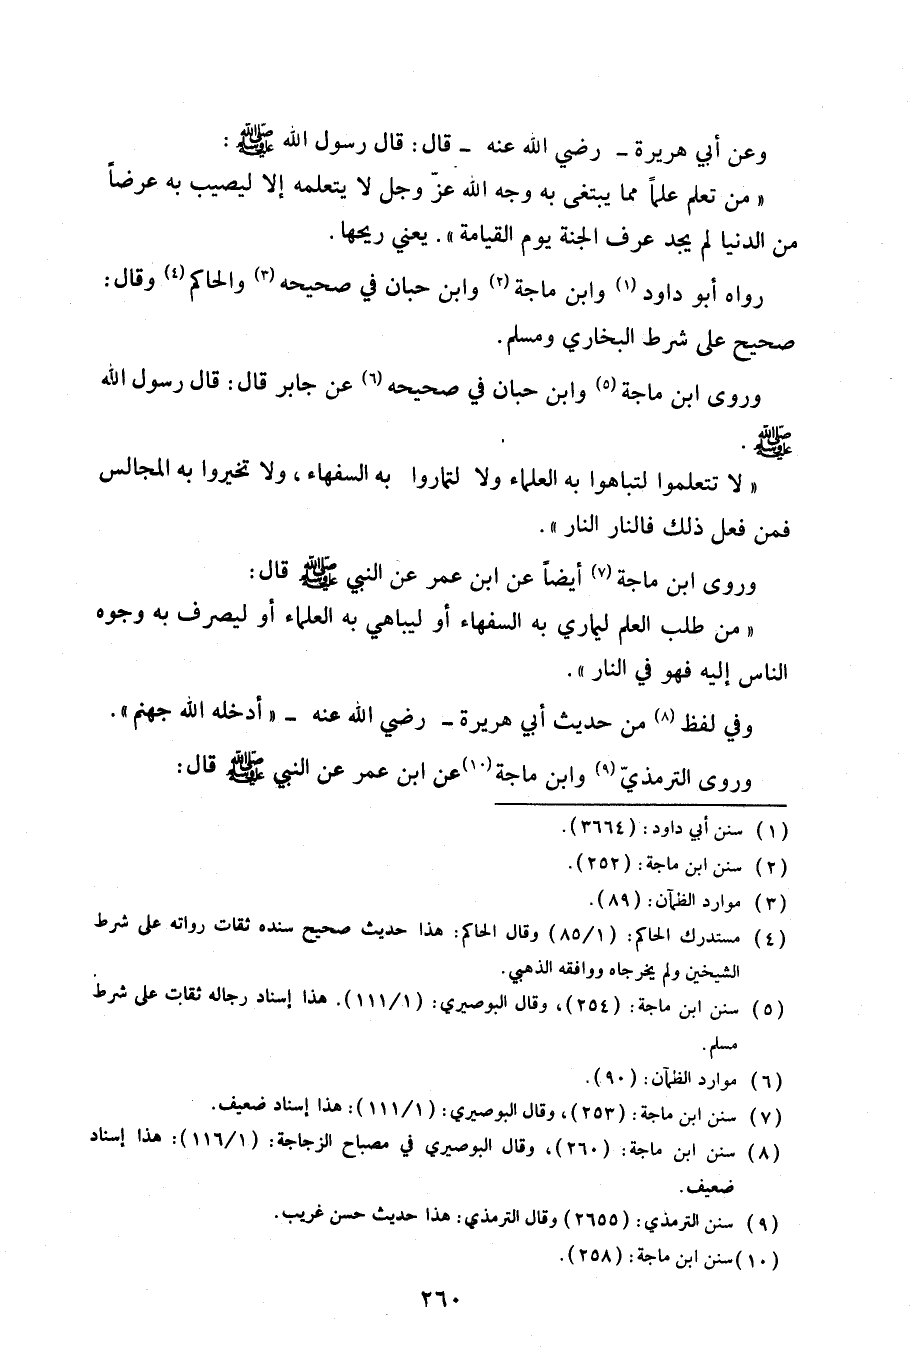 وعن أبي هريرة ـ رضي الله عنه ـ قال: قال رسول الله ﷺ:
« من تعلم علماً مما يبتغى به وجه الله عزّ وجل لا يتعلمه إلا ليصيب به عرضاً
من الدنيا لم يجد عرف الجنة يوم القيامة ». يعني ريحها.
رواه أبو داود (١) وابن ماجة (٢) وابن حبان في صحيحه (٣) والحاكم (٤) وقال:
صحيح على شرط البخاري ومسلم.
وروى ابن ماجة (٥) وابن حبان في صحيحه (٦) عن جابر قال: قال رسول الله
ﷺ.
« لا تتعلموا لتباهوا به العلماء ولا لتماروا به السفهاء، ولا تخيروا به المجالس
فمن فعل ذلك فالنار النار ».
وروى ابن ماجة (٧) أيضاً عن ابن عمر عن النبي ﷺ قال:
« من طلب العلم ليماري به السفهاء أو ليباهي به العلماء أو ليصرف به وجوه
الناس إليه فهو في النار ».
وفي لفظ (٨) من حديث أبي هريرة ـ رضي الله عنه ـ « أدخله الله جهنم ».
وروى الترمذيّ (٩) وابن ماجة (١٠) عن ابن عمر عن النبي ﷺ قال:
(١) سنن أبي داود: (٣٦٦٤).
(٢) سنن ابن ماجة: (٢٥٢).
(٣) موارد الظمآن: (٨٩).
(٤) مستدرك الحاكم: (٨٥/١) وقال الحاكم: هذا حديث صحيح سنده ثقات رواته على شرط
الشيخين ولم يخرجاه ووافقه الذهبي.
(٥) سنن ابن ماجة: (٢٥٤)، وقال البوصيري: (١١١/١). هذا إسناد رجاله ثقات على شرط
مسلم.
(٦) موارد الظمآن: (٩٠).
(٧) سنن ابن ماجة: (٢٥٣)، وقال البوصيري: (١١١/١): هذا إسناد ضعيف.
(٨) سنن ابن ماجة: (٢٦٠)، وقال البوصيري في مصباح الزجاجة: (١١٦/١): هذا إسناد
ضعيف.
(٩) سنن الترمذي: (٢٦٥٥) وقال الترمذي: هذا حديث حسن غريب.
(١٠) سنن ابن ماجة: (٢٥٨).
٢٦٠